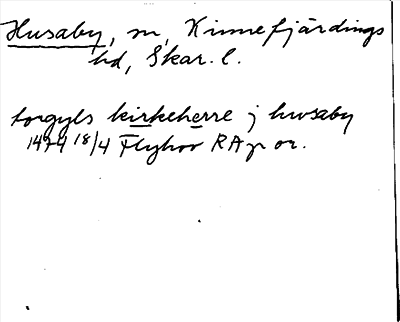 Husaby, sn, Kinnefjärdings
hd, Skar. l.
torgyls kirkeherre j hwsaby
1474 18/4 Flyhov RAp or.